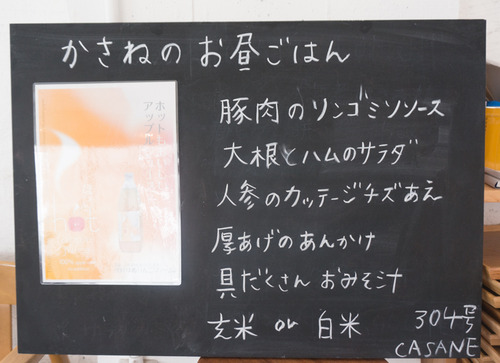 かさねの お昼ごはん
ホット
アップル
豚肉のリンゴミソソース
大根とハムのサラダ
人参のカッテージチズあえ
厚あげのあんかけ
具だくさん おみそ汁
玄米 or 白米
304号
CASANE